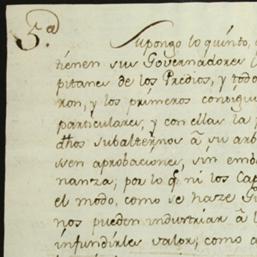 5.a
Supongo lo quinto,
tienen sus Governadores
pitanes de los Predios, y todo
ron, y los primeros consigu
particulares, y con ellas la
dhos subalternos à su ar
sen aprobaciones, sin emb
nanza; por lo q̃ ni los Cap
el modo, como se haze Gu
nos pueden industriar à l
infundirles valor; como a